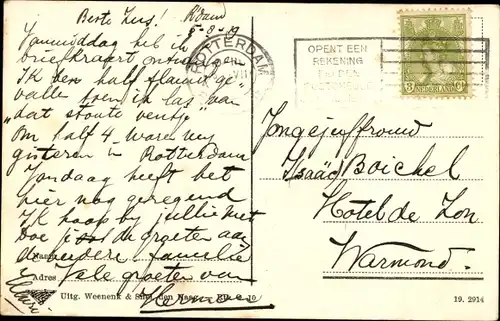 Beste Zus! R'dam
5-8-19
Vanmiddag heb ik
briefkaart ontvangen
Ik ben half flauw ge"
valle toen ik las van
"dat stoute ventje"
Om half 4 waren wij
gisteren in Rotterdam
Vandaag heeft het
hier nog geregend
Ik hoop bij jullie niet
Doe je de groeten aan
de verdere familie
Vele groeten van
Herman
Naam
Adres
Uitg. Weenenk & Snel, den Haag
ROTTERDAM
OPENT EEN
REKENING
BIJ DEN
3 NEDERLAND Ct
Jongejuffrouw
Isaäc Boichel
Hotel de Zon
Warmond.
19. 2914